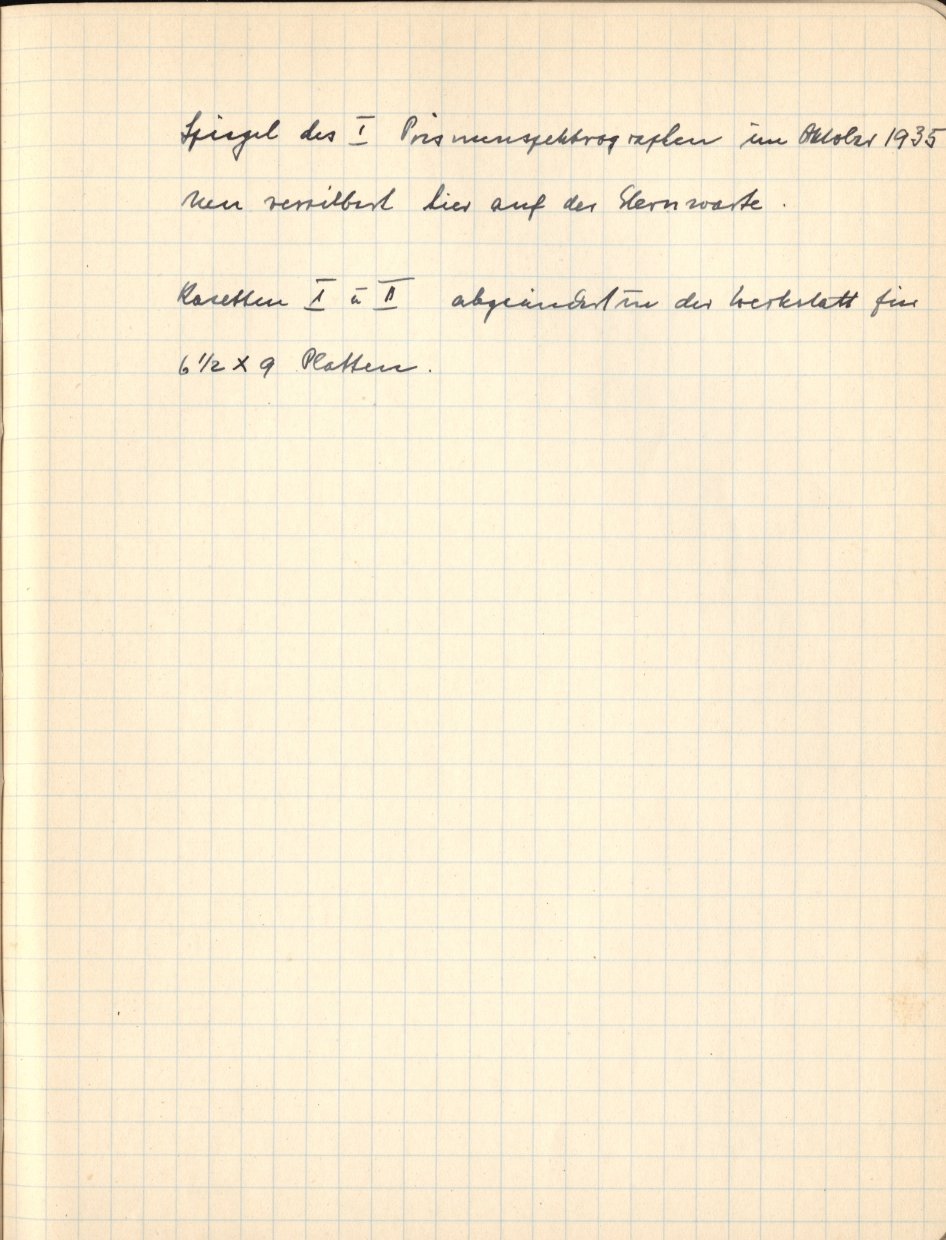 Spiegel des I Prismenspektrographen im Oktober 1935
neu versilbert hier auf der Sternwarte.
Kasetten I u II abgeändert in der Werkstatt für
6 1/2 x 9 Platten.